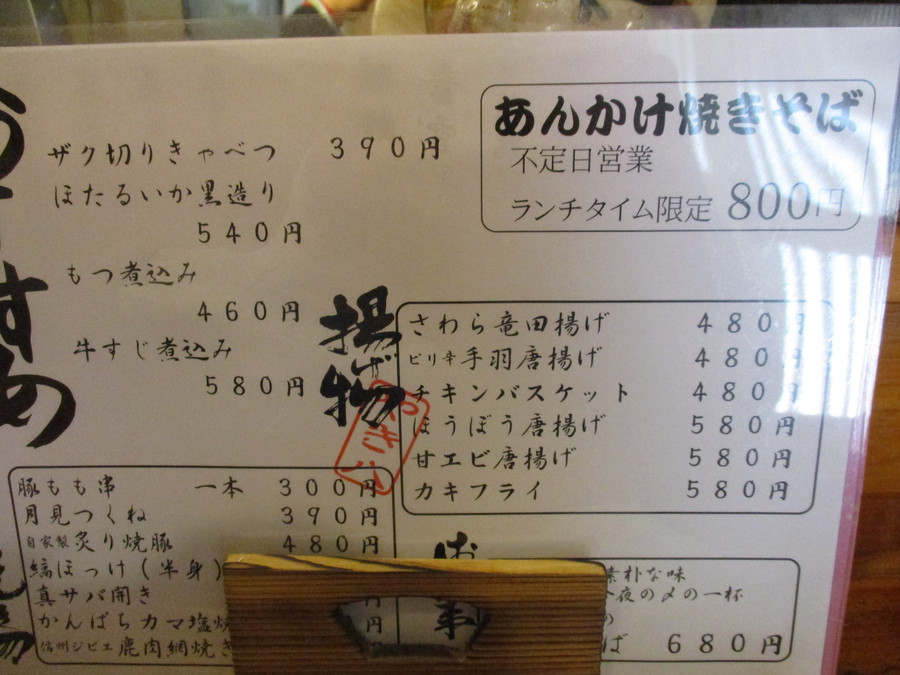 すすめ
ザク切りきゃべつ 390円
ほたるいか黒造り
540円
もつ煮込み
460円
牛すじ煮込み
580円
あんかけ焼きそば
不定日営業
ランチタイム限定 800円
揚げ物
さわら竜田揚げ 480円
ピリ辛手羽唐揚げ 480円
チキンバスケット 480円
ほうぼう唐揚げ 580円
甘エビ唐揚げ 580円
カキフライ 580円
豚もも串 一本 300円
月見つくね 390円
自家製炙り焼豚 480円
縞ほっけ(半身)
真サバ開き
かんぱちカマ塩焼
信州ジビエ鹿肉網焼き
円
素朴な味
今夜の〆の一杯
の
ば 680円